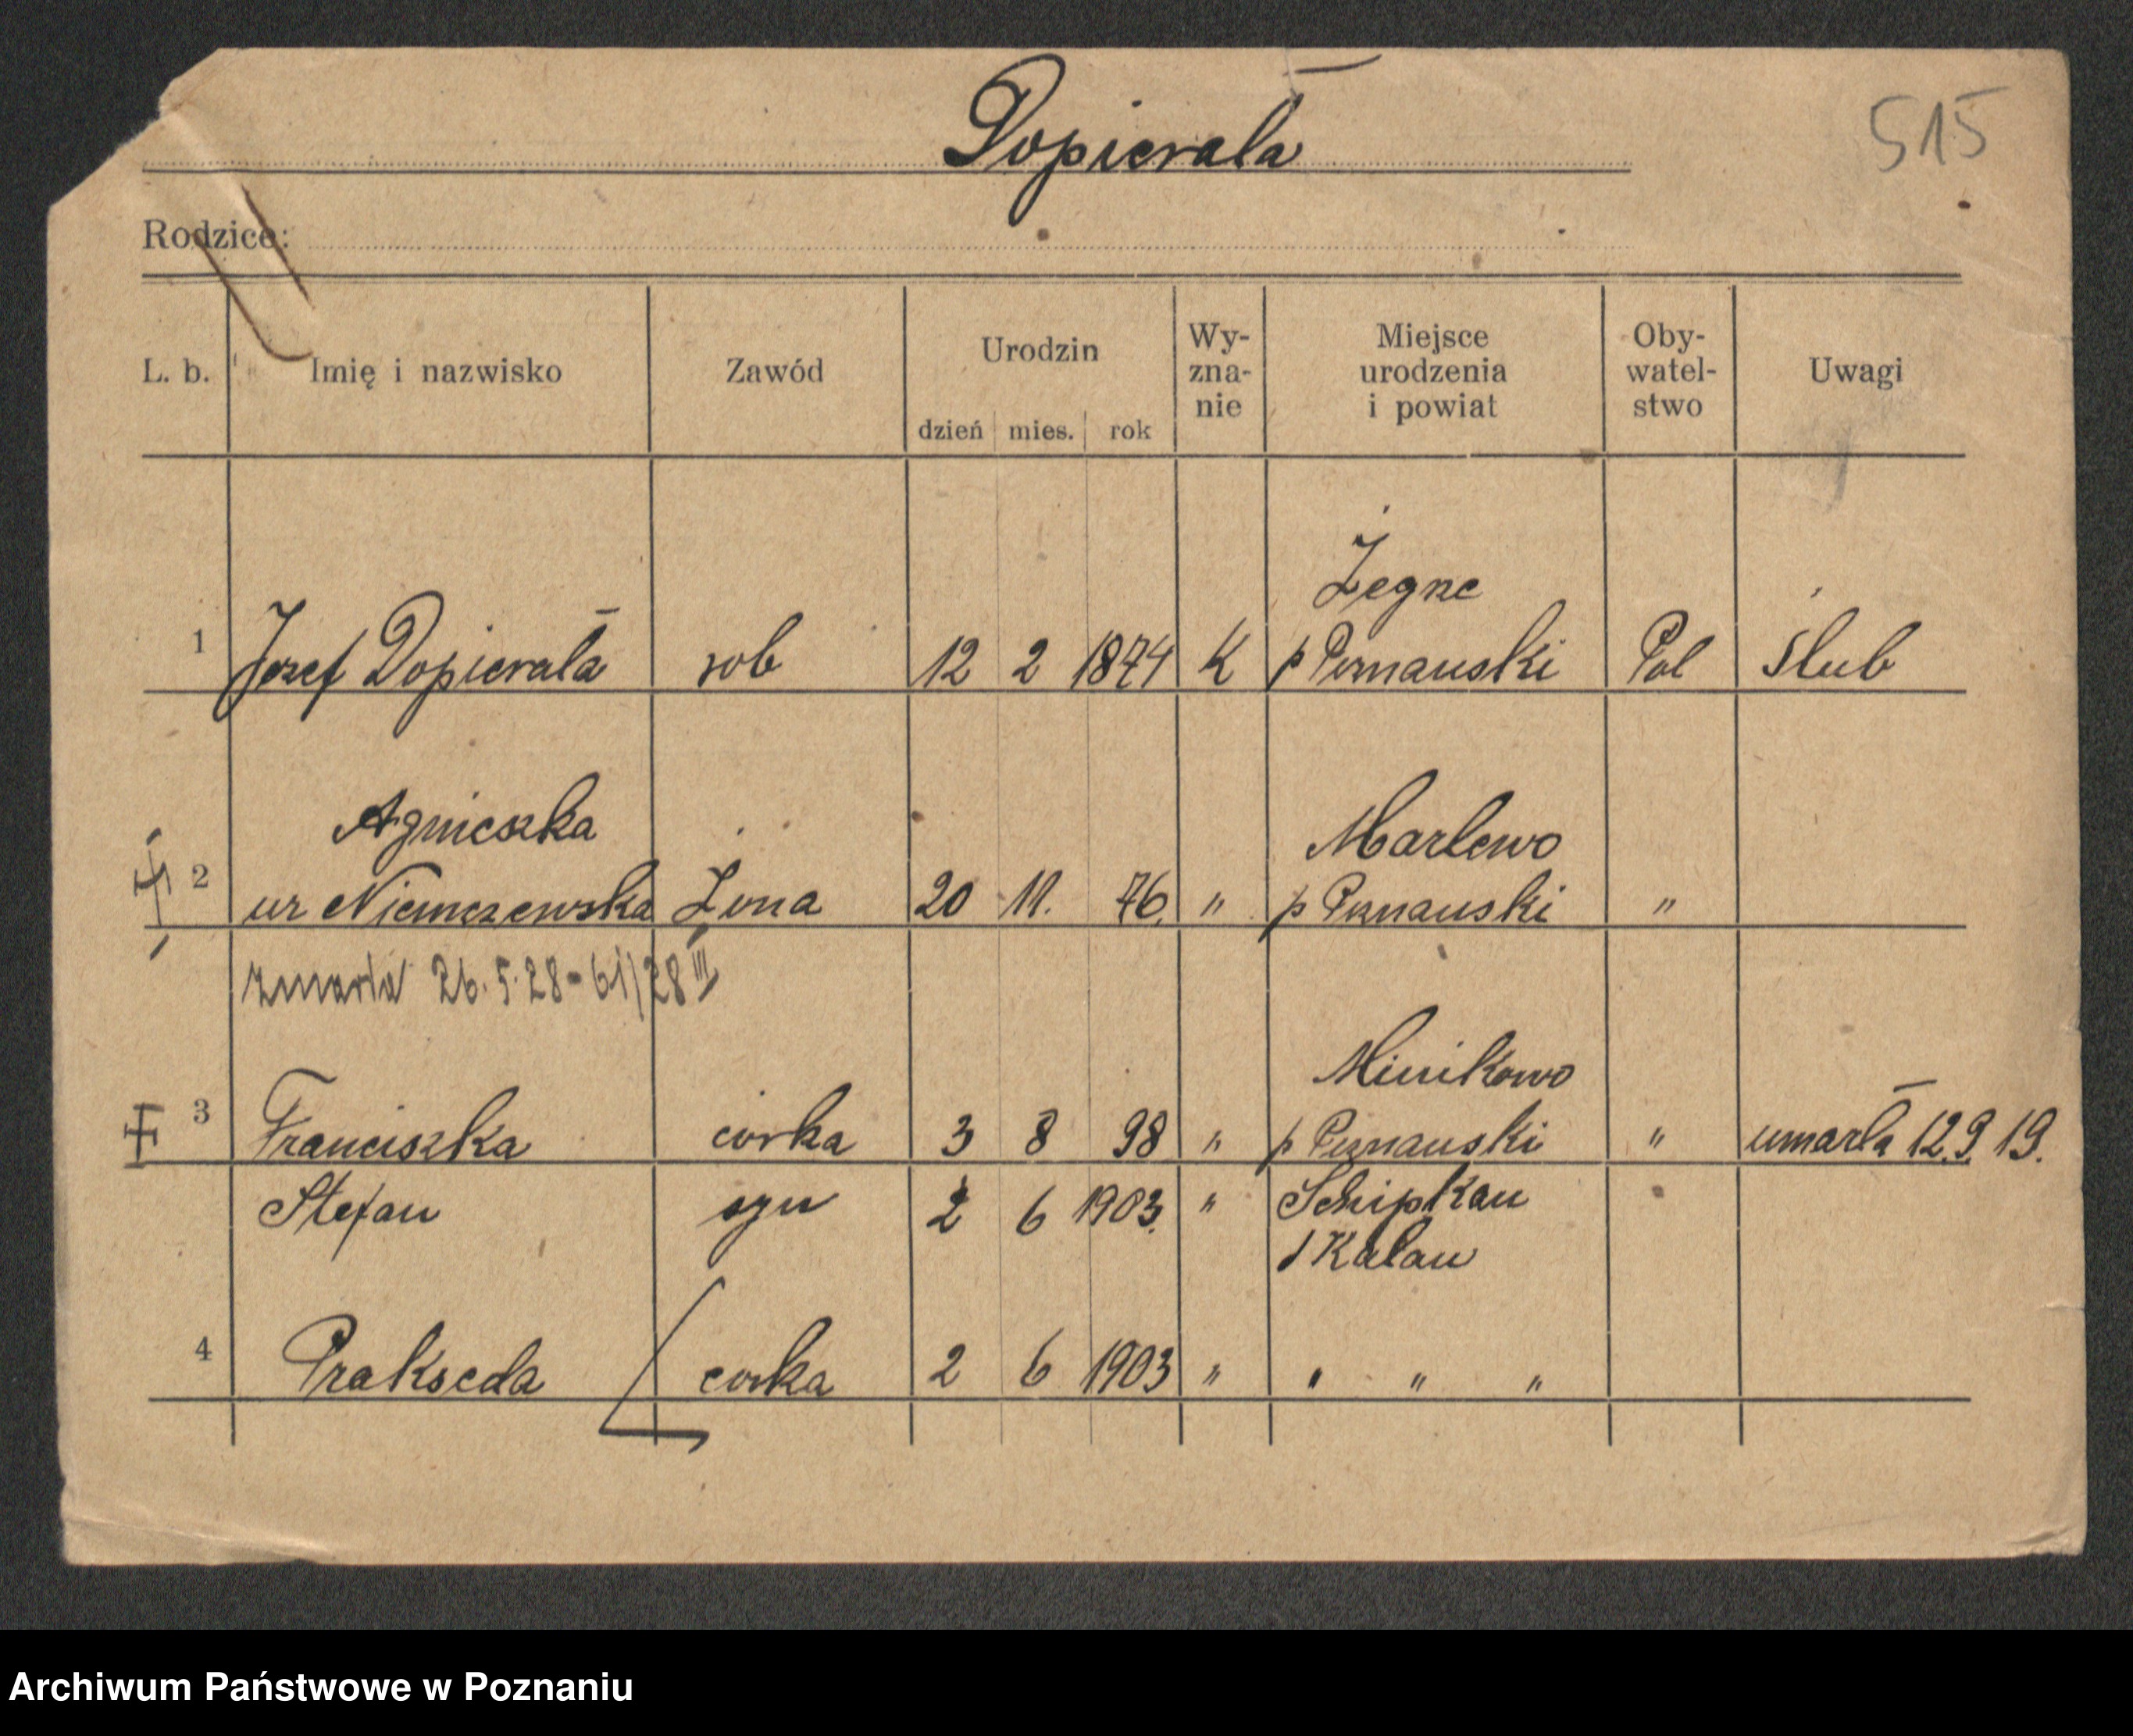 Dopierała
515
Rodzice:
L. b. Imię i nazwisko Zawód Urodzin dzień mies. rok Wy-zna-nie Miejsce urodzenia i powiat Oby-watel-stwo Uwagi
Żegrze
1 Jozef Dopierała rob 12 2 1874 K p Poznanski Pol Ślub
Agnieszka Marlewo
2 ur Niemczewska Żona 20 11. 76. " p Poznanski "
zmarła 26.5.28-61/28 III
Minikowo
3 Franciszka córka 3 8 98 " p Poznanski " umarła 12.9.19.
Stefan syn 2 6 1903. " Schipkau
/Kalau
4 Prakseda corka 2 6 1903 " " " "
Archiwum Państwowe w Poznaniu